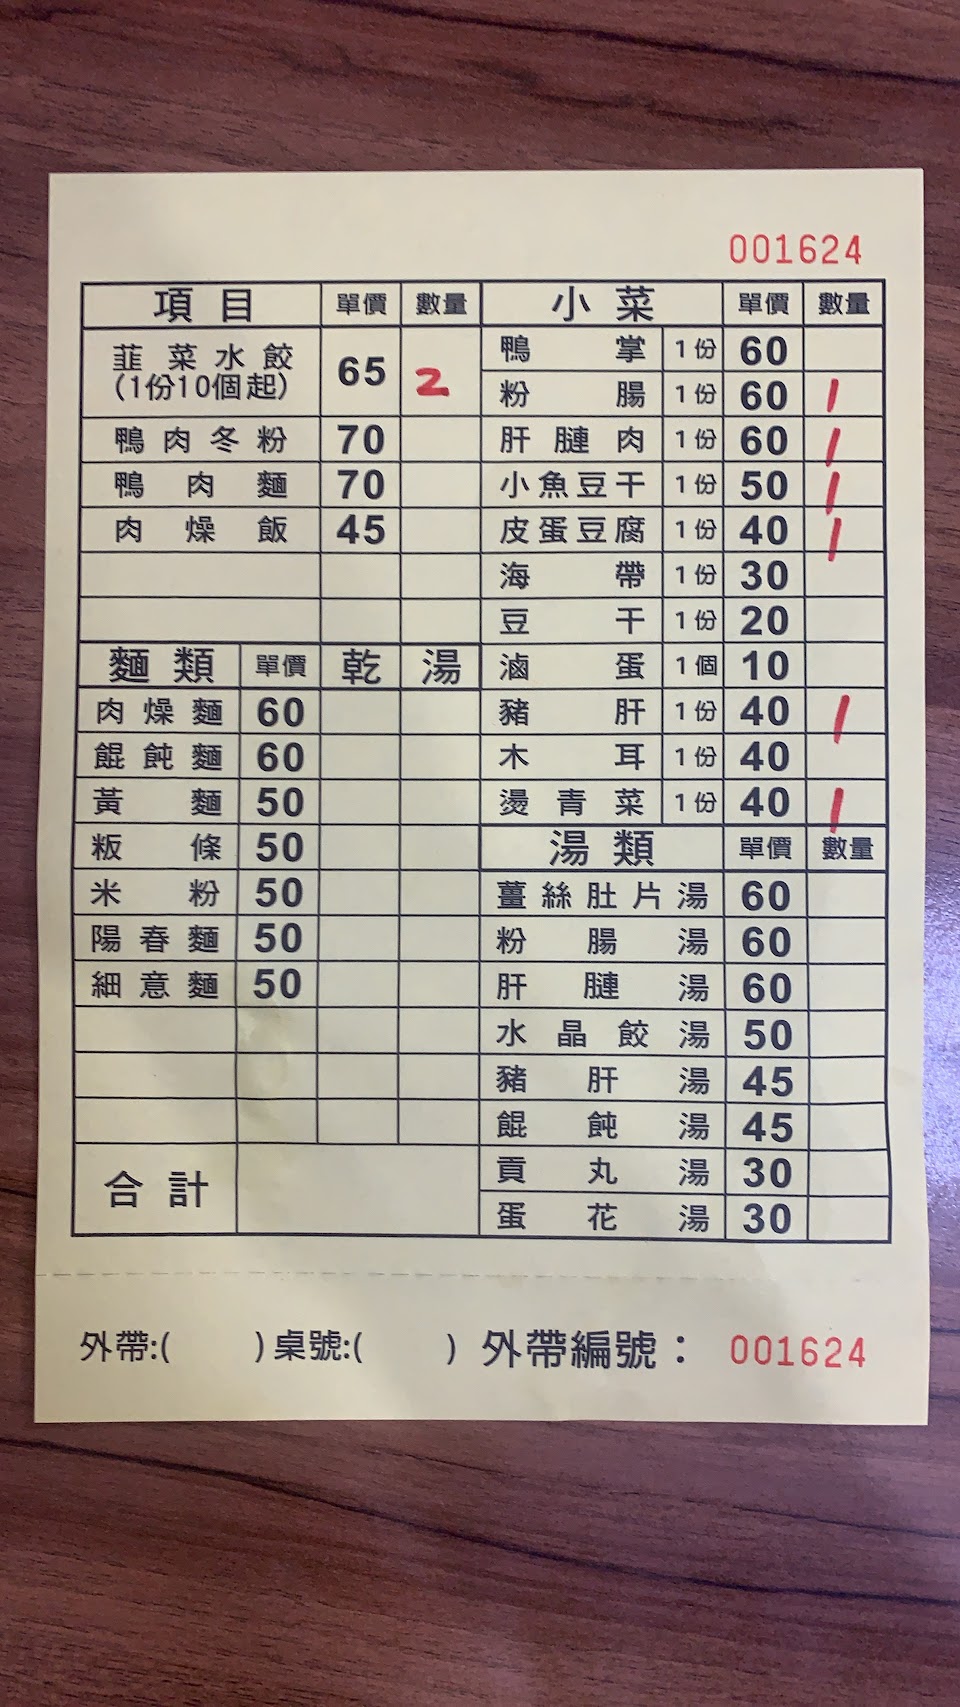 001624
項目 單價 數量 小菜 單價 數量
韮菜水餃 (1份10個起) 65 2
鴨掌 1份 60
粉腸 1份 60 1
鴨肉冬粉 70 肝膁肉 1份 60 1
鴨肉麵 70 小魚豆干 1份 50 1
肉燥飯 45 皮蛋豆腐 1份 40 1
海帶 1份 30
豆干 1份 20
麵類 單價 乾 湯 滷蛋 1個 10
肉燥麵 60 豬肝 1份 40 1
餛飩麵 60 木耳 1份 40
黃麵 50 燙青菜 1份 40 1
粄條 50 湯類 單價 數量
米粉 50 薑絲肚片湯 60
陽春麵 50 粉腸湯 60
細意麵 50 肝膁湯 60
水晶餃湯 50
豬肝湯 45
餛飩湯 45
合計 貢丸湯 30
蛋花湯 30
外帶:( ) 桌號:( ) 外帶編號： 001624